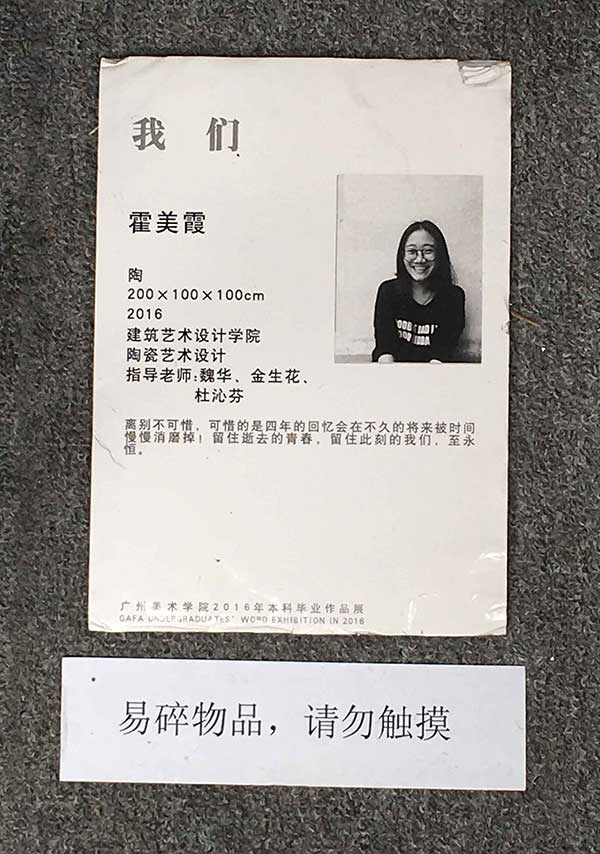 我们
霍美霞
陶
200×100×100cm
2016
建筑艺术设计学院
陶瓷艺术设计
指导老师:魏华、金生花、
杜沁芬
离别不可惜，可惜的是四年的回忆会在不久的将来被时间
慢慢消磨掉！留住逝去的青春，留住此刻的我们，至永
恒。
广州美术学院2016年本科毕业作品展
GAFA UNDERGRADUATES' WORD EXHIBITION IN 2016
易碎物品，请勿触摸